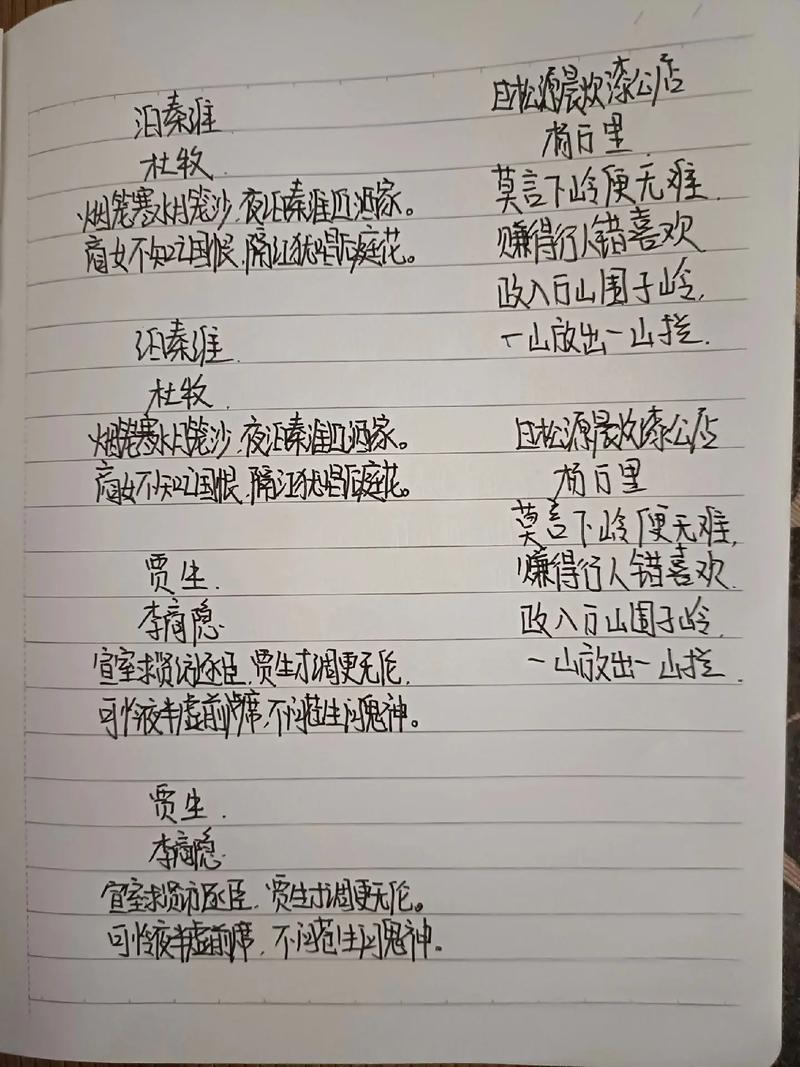 泊秦淮
杜牧.
烟笼寒水月笼沙,夜泊秦淮近酒家。
商女不知亡国恨,隔江犹唱后庭花。
泊秦淮.
杜牧.
烟笼寒水月笼沙,夜泊秦淮近酒家。
商女不知亡国恨,隔江犹唱后庭花。
贾生.
李商隐.
宣室求贤访逐臣,贾生才调更无伦,
可怜夜半虚前席,不问苍生问鬼神。
贾生.
李商隐.
宣室求贤访逐臣,贾生才调更无伦。
可怜夜半虚前席,不问苍生问鬼神。
过松源晨炊漆公店
杨万里.
莫言下岭便无难.
赚得行人错喜欢
政入万山围子岭,
一山放出一山拦.
过松源晨炊漆公店
杨万里
莫言下岭便无难,
赚得行人错喜欢.
政入万山围子岭.
一山放出一山拦.